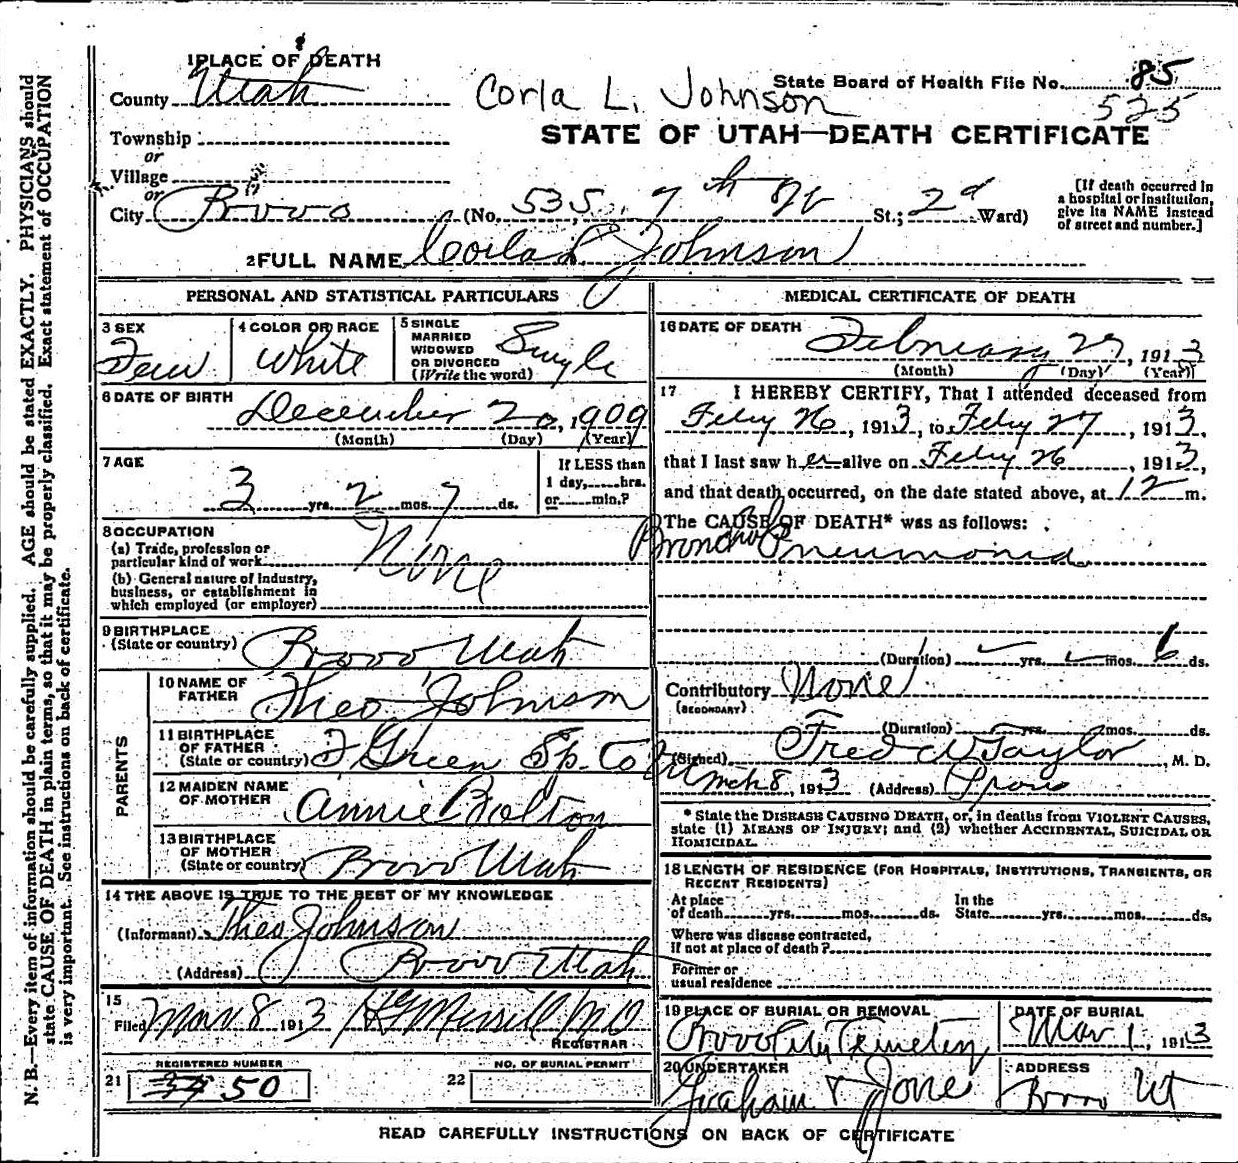 1 PLACE OF DEATH
County Utah
Corla L. Johnson
State Board of Health File No. 85
525
Township
or
Village
or
City Provo
STATE OF UTAH—DEATH CERTIFICATE
(No. 535, 7th St.; 2d Ward)
[If death occurred in a hospital or institution, give its NAME instead of street and number.]
2 FULL NAME Corla L Johnson
PERSONAL AND STATISTICAL PARTICULARS
3 SEX Fem
4 COLOR OR RACE White
5 SINGLE MARRIED WIDOWED OR DIVORCED (Write the word) Single
6 DATE OF BIRTH
December 20, 1909
(Month) (Day) (Year)
7 AGE
3 yrs. 2 mos. 7 ds.
If LESS than
1 day, hrs.
or min.?
8 OCCUPATION
(a) Trade, profession or
particular kind of work None
(b) General nature of industry,
business, or establishment in
which employed (or employer)
9 BIRTHPLACE
(State or country) Provo Utah
PARENTS
10 NAME OF
FATHER Theo Johnson
11 BIRTHPLACE
OF FATHER
(State or country) Green
12 MAIDEN NAME
OF MOTHER Annie Bolton
13 BIRTHPLACE
OF MOTHER
(State or country) Provo Utah
14 THE ABOVE IS TRUE TO THE BEST OF MY KNOWLEDGE
(Informant) Theo Johnson
(Address) Provo Utah
15
Filed Mar 8 1913 Merrill MD
REGISTRAR
REGISTERED NUMBER
21 50
NO. OF BURIAL PERMIT
22
MEDICAL CERTIFICATE OF DEATH
16 DATE OF DEATH
February 27, 1913
(Month) (Day) (Year)
17 I HEREBY CERTIFY, That I attended deceased from
Feby 26, 1913, to Feby 27, 1913,
that I last saw her alive on Feby 26, 1913,
and that death occurred, on the date stated above, at 12 m.
The CAUSE OF DEATH* was as follows:
Broncho Pneumonia
(Duration) yrs. mos. 6 ds.
Contributory None
(SECONDARY)
(Duration) yrs. mos. ds.
(Signed) Fred W Taylor, M. D.
Mch 8, 1913 (Address) Provo
* State the DISEASE CAUSING DEATH, or, in deaths from VIOLENT CAUSES,
state (1) MEANS OF INJURY; and (2) whether ACCIDENTAL, SUICIDAL OR
HOMICIDAL.
18 LENGTH OF RESIDENCE (FOR HOSPITALS, INSTITUTIONS, TRANSIENTS, OR
RECENT RESIDENTS)
At place
of death yrs. mos. ds.
In the
State yrs. mos. ds.
Where was disease contracted,
If not at place of death?
Former or
usual residence
19 PLACE OF BURIAL OR REMOVAL
Provo City Cemetery
DATE OF BURIAL
Mar 1, 1913
20 UNDERTAKER
Graham & Jones
ADDRESS
Provo Ut
READ CAREFULLY INSTRUCTIONS ON BACK OF CERTIFICATE
N. B.—Every item of information should be carefully supplied. AGE should be stated EXACTLY. PHYSICIANS should
state CAUSE OF DEATH in plain terms, so that it may be properly classified. Exact statement of OCCUPATION
is very important. See instructions on back of certificate.